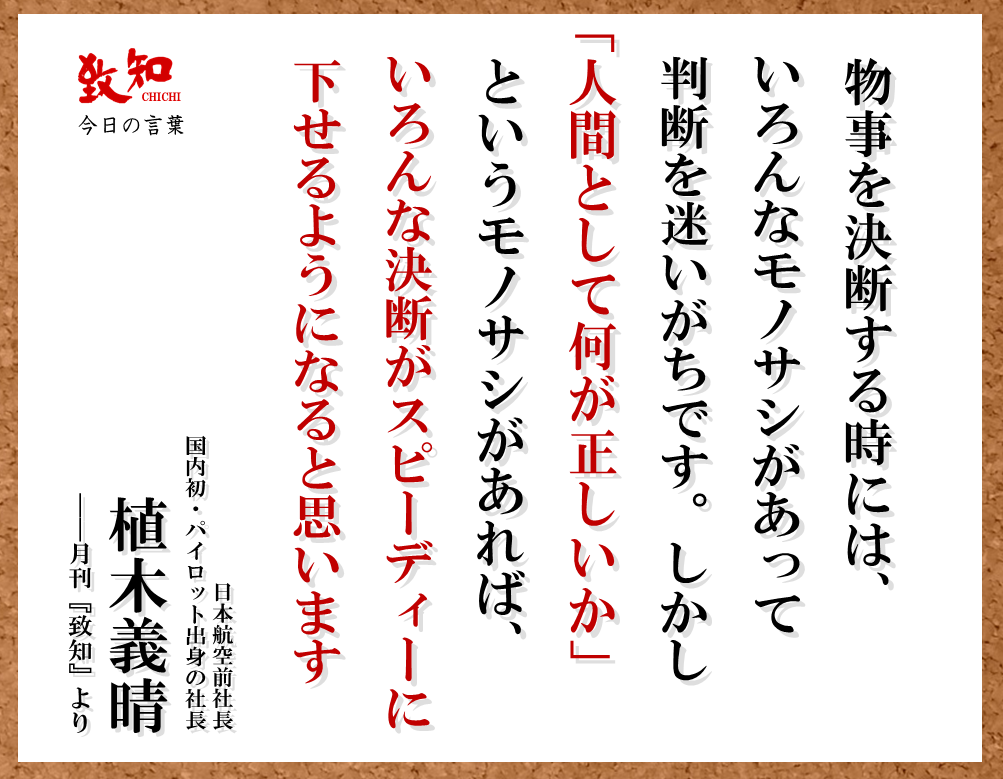 物事を決断する時には、
いろんなモノサシがあって
判断を迷いがちです。しかし
「人間として何が正しいか」
というモノサシがあれば、
いろんな決断がスピーディーに
下せるようになると思います
日本航空前社長
国内初・パイロット出身の社長
植木義晴
──月刊『致知』より
致知
CHICHI
今日の言葉